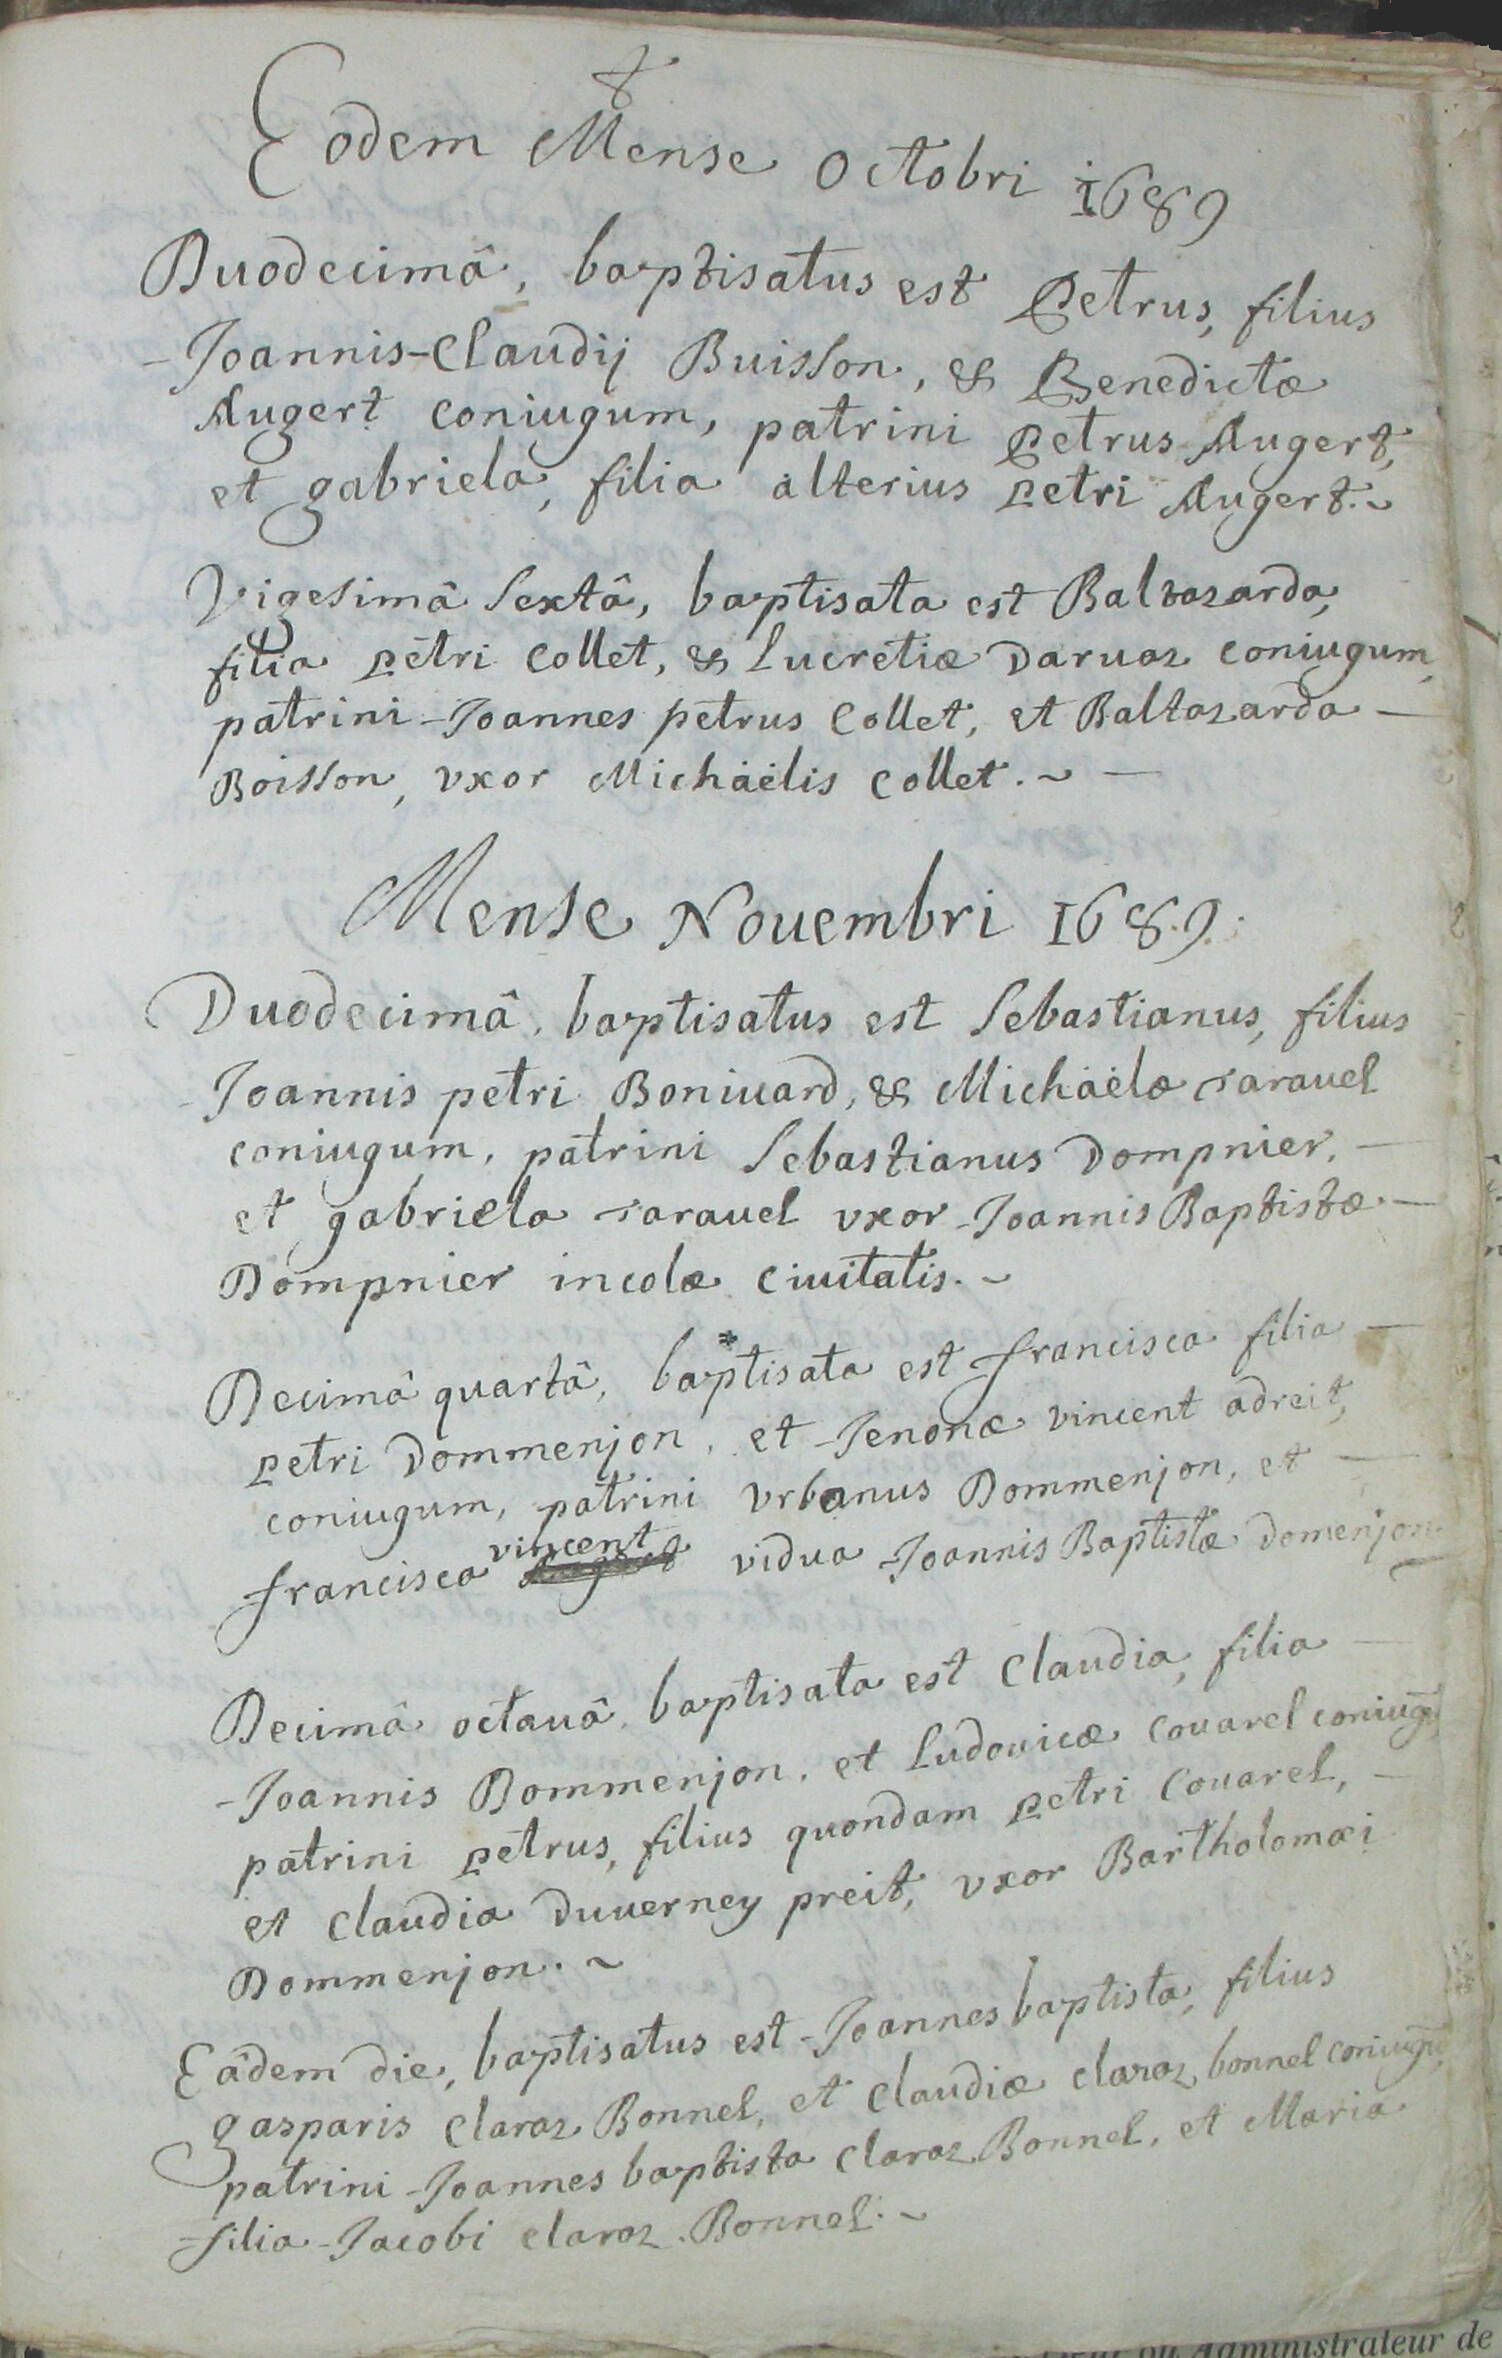 Eodem Mense Octobri 1689
Duodecimâ, baptisatus est Petrus, filius
Joannis-Claudij Buisson, & Benedictæ
Augert coniugum, patrini Petrus Augert,
et gabriela, filia alterius Petri Augert.~
Vigesimâ sextâ, baptisata est Baltazarda,
filia Petri Collet, & Lucretiæ Daruaz coniugum,
patrini Joannes petrus Collet, et Baltazarda —
Boisson, vxor Michaëlis Collet.~ —
Mense Nouembri 1689.
Duodecimâ, baptisatus est Sebastianus, filius
Joannis petri Boniuard, & Michaëlæ rarauel
coniugum, patrini Sebastianus Dompnier, —
et gabriela rarauel vxor Joannis Baptistæ —
Dompnier incolæ Ciuitatis.~
Decimâ quartâ, baptisata est francisca filia —
Petri Dommenjon, et Jenonæ vincent adreit,
coniugum, patrini vrbanus Dommenjon, et —
francisca vincent vidua Joannis Baptistæ Domenjon.
Decimâ octauâ, baptisata est Claudia, filia —
Joannis Dommenjon, et Ludouicæ Couarel coniugũ,
patrini Petrus, filius quondam Petri Couarel, —
et Claudia Duuerney preit, vxor Bartholomæi
Dommenjon.~
Eâdem die, baptisatus est Joannes baptista, filius
gasparis Claraz Bonnel, et Claudiæ claraz bonnel coniugũ,
patrini Joannes baptista Claraz Bonnel, et Maria
filia Jacobi claraz Bonnel.~
Administrateur de